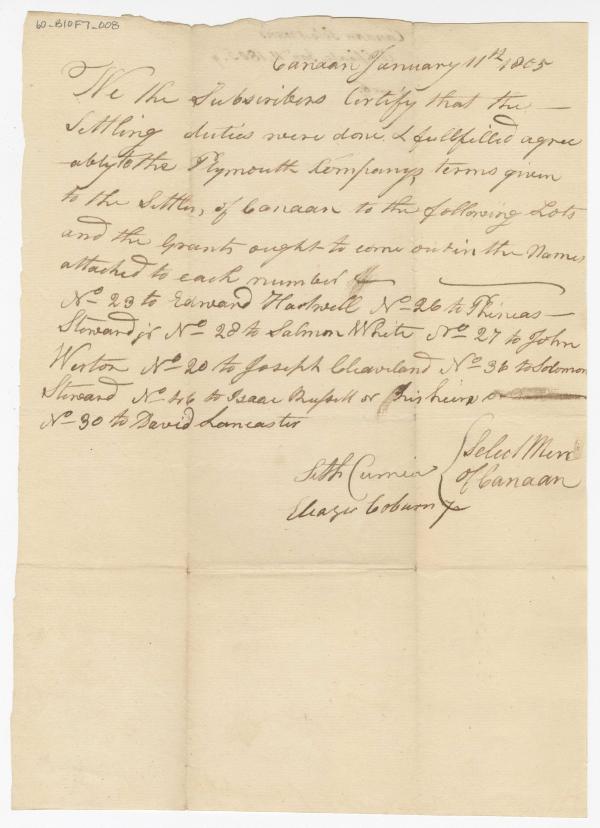 60-B10F7-008
Canaan January 11th 1805
We the Subscribers Certify that the
Settling duties were done & fullfilled agree
ably to the Plymouth Companys terms given
to the Settlers, of Canaan to the following Lots
and the Grants ought to come out in the Names
attached to each number
No 23 to Edward Hartwell No 26 to Phineas
Steward jr No 28 to Salmon White No 27 to John
Weston No 20 to Joseph Cleaveland No 36 to Solomon
Steward No 46 to Isaac Russell or his heirs or
No 30 to David Lancaster
Seth Currier { Select Men
Eleazer Coburn of Canaan